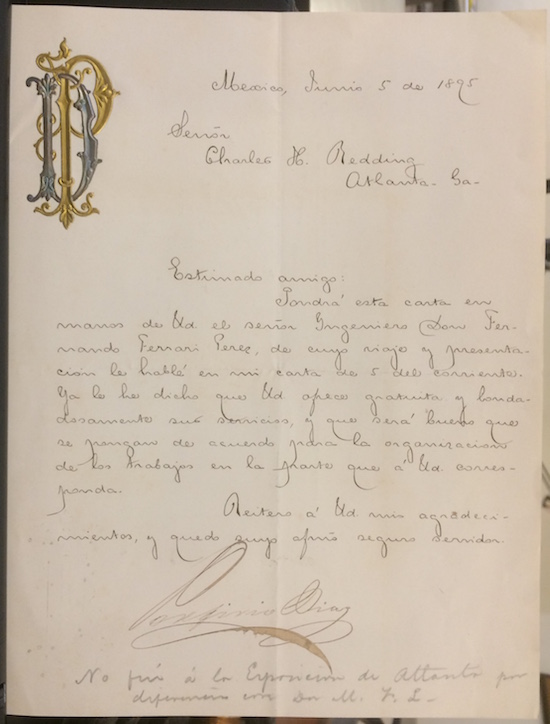 PD
Mexico, Junio 5 de 1895
Señor
Charles H. Redding
Atlanta - Ga -
Estimado amigo:
Pondrá esta carta en
manos de Ud. el señor Ingeniero Don Fer-
nando Ferrari Perez, de cuyo viaje y presenta-
cion le hablé en mi carta de 5 del corriente.
Ya le he dicho que Ud. ofrece gratuita y bonda-
dosamente sus servicios, y que será bueno que
se pongan de acuerdo para la organizacion
de los trabajos en la parte que á Ud. corres-
ponda.
Reitero á Ud. mis agradeci-
mientos, y quedo suyo afmo seguro servidor.
Porfirio Diaz
No fué á la Exposicion de Atlanta por
con Don M. F. L.